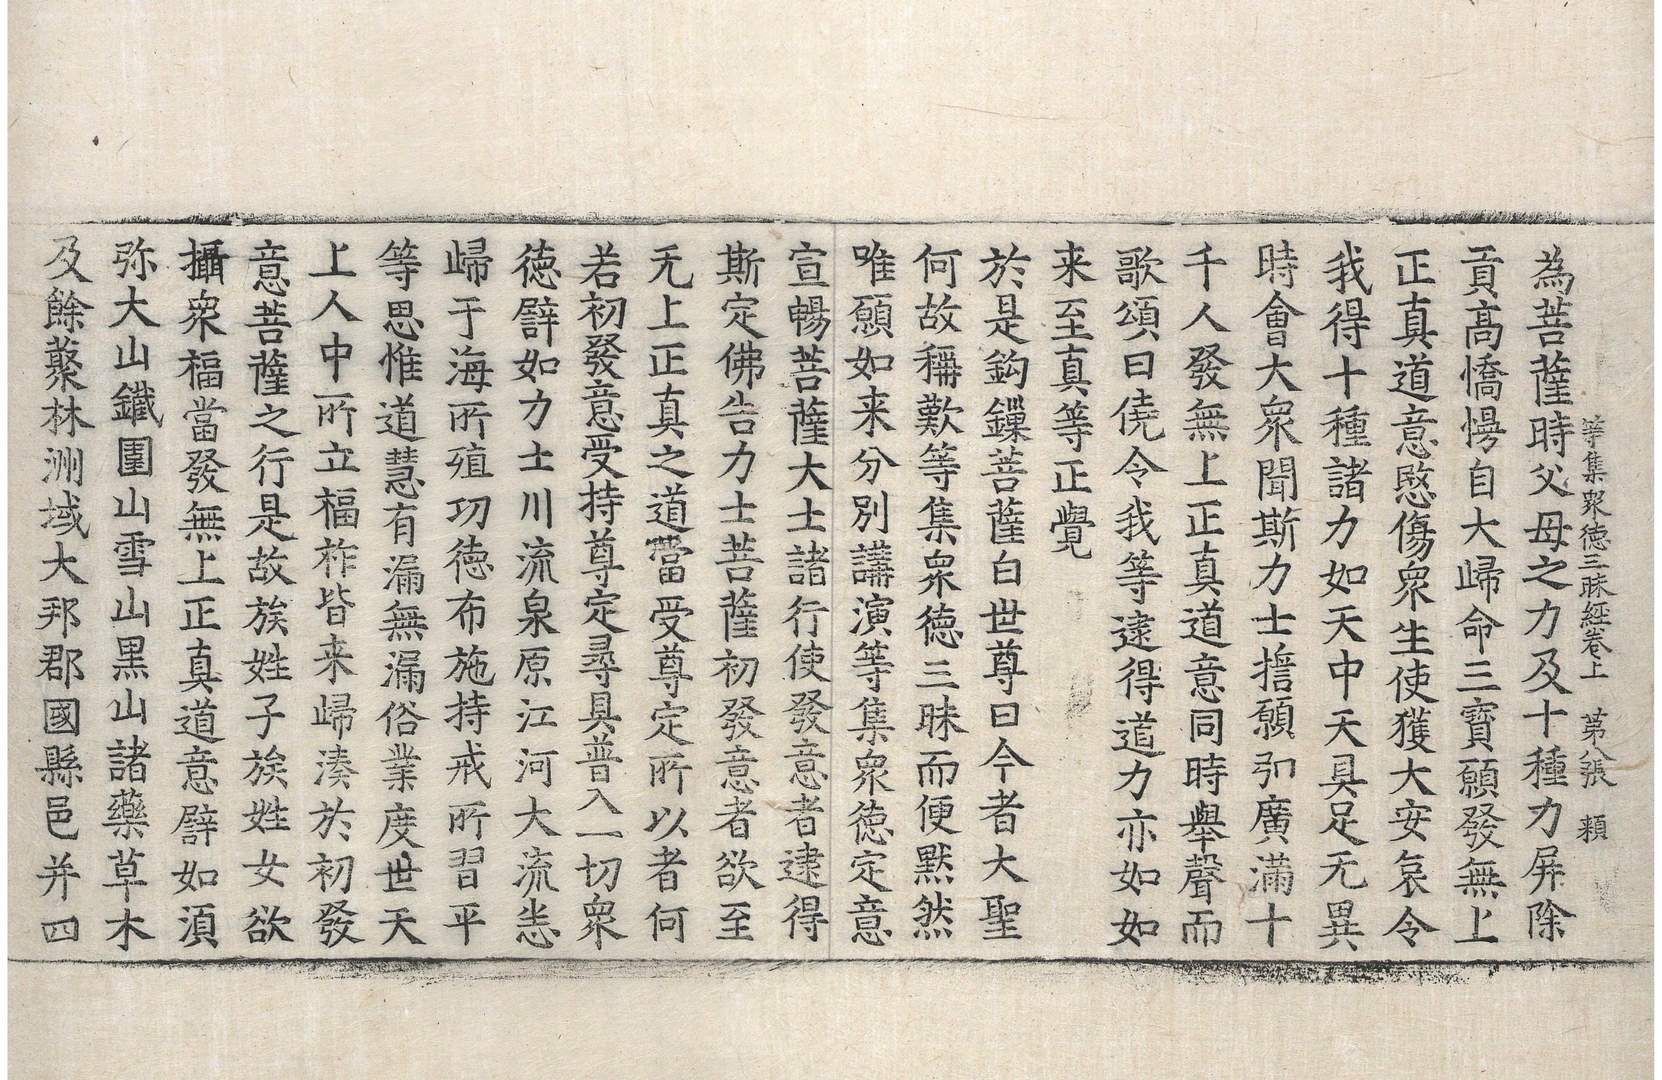 等集衆徳三昧經卷上　第八張　類
為菩薩時父母之力及十種力屏除
貢高憍慢自大歸命三寶願發無上
正真道意愍傷衆生使獲大安哀令
我得十種諸力如天中天具足无異
時會大衆聞斯力士擔願弘廣滿十
千人發無上正真道意同時舉聲而
歌頌曰僥令我等逮得道力亦如如
来至真等正覺
於是鈎鏁菩薩白世尊曰今者大聖
何故稱歎等集衆徳三昧而便黙然
唯願如来分別講演等集衆徳定意
宣暢菩薩大士諸行使發意者逮得
斯定佛告力士菩薩初發意者欲至
无上正真之道當受尊定所以者何
若初發意受持尊定尋具普入一切衆
徳譬如力士川流泉原江河大流悉
歸于海所殖功徳布施持戒所習平
等思惟道慧有漏無漏俗業度世天
上人中所立福祚皆来歸湊於初發
意菩薩之行是故族姓子族姓女欲
攝衆福當發無上正真道意譬如須
弥大山鐵圍山雪山黒山諸藥草木
及餘藂林洲域大邦郡國縣邑并四